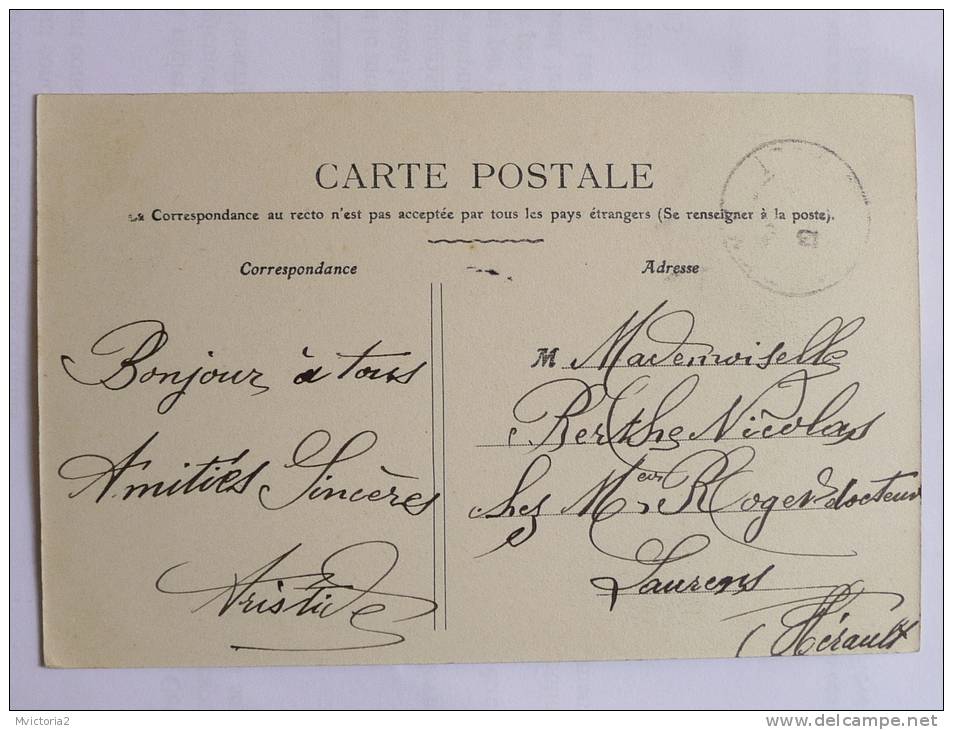 CARTE POSTALE
La Correspondance au recto n'est pas acceptée par tous les pays étrangers (Se renseigner à la poste).
Correspondance
Adresse
Bonjour à tous
Amitiés Sincères
Aristide
M Mademoiselle
Berthe Nicolas
chez Meur Roger docteur
Laurens
(Hérault
B
Mvictoria2
www.delcampe.net